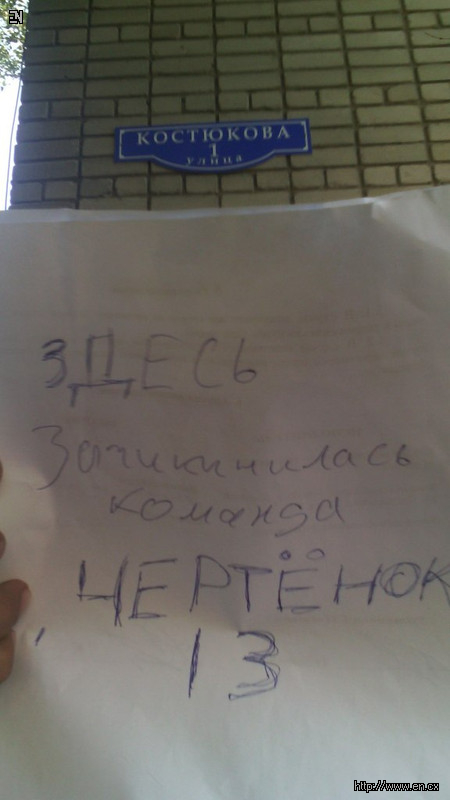 EN
КОСТЮКОВА
1
улица
ЗДЕСЬ
Зачикинилась
команда
ЧЕРТЁНОК
13
http://www.en.cx